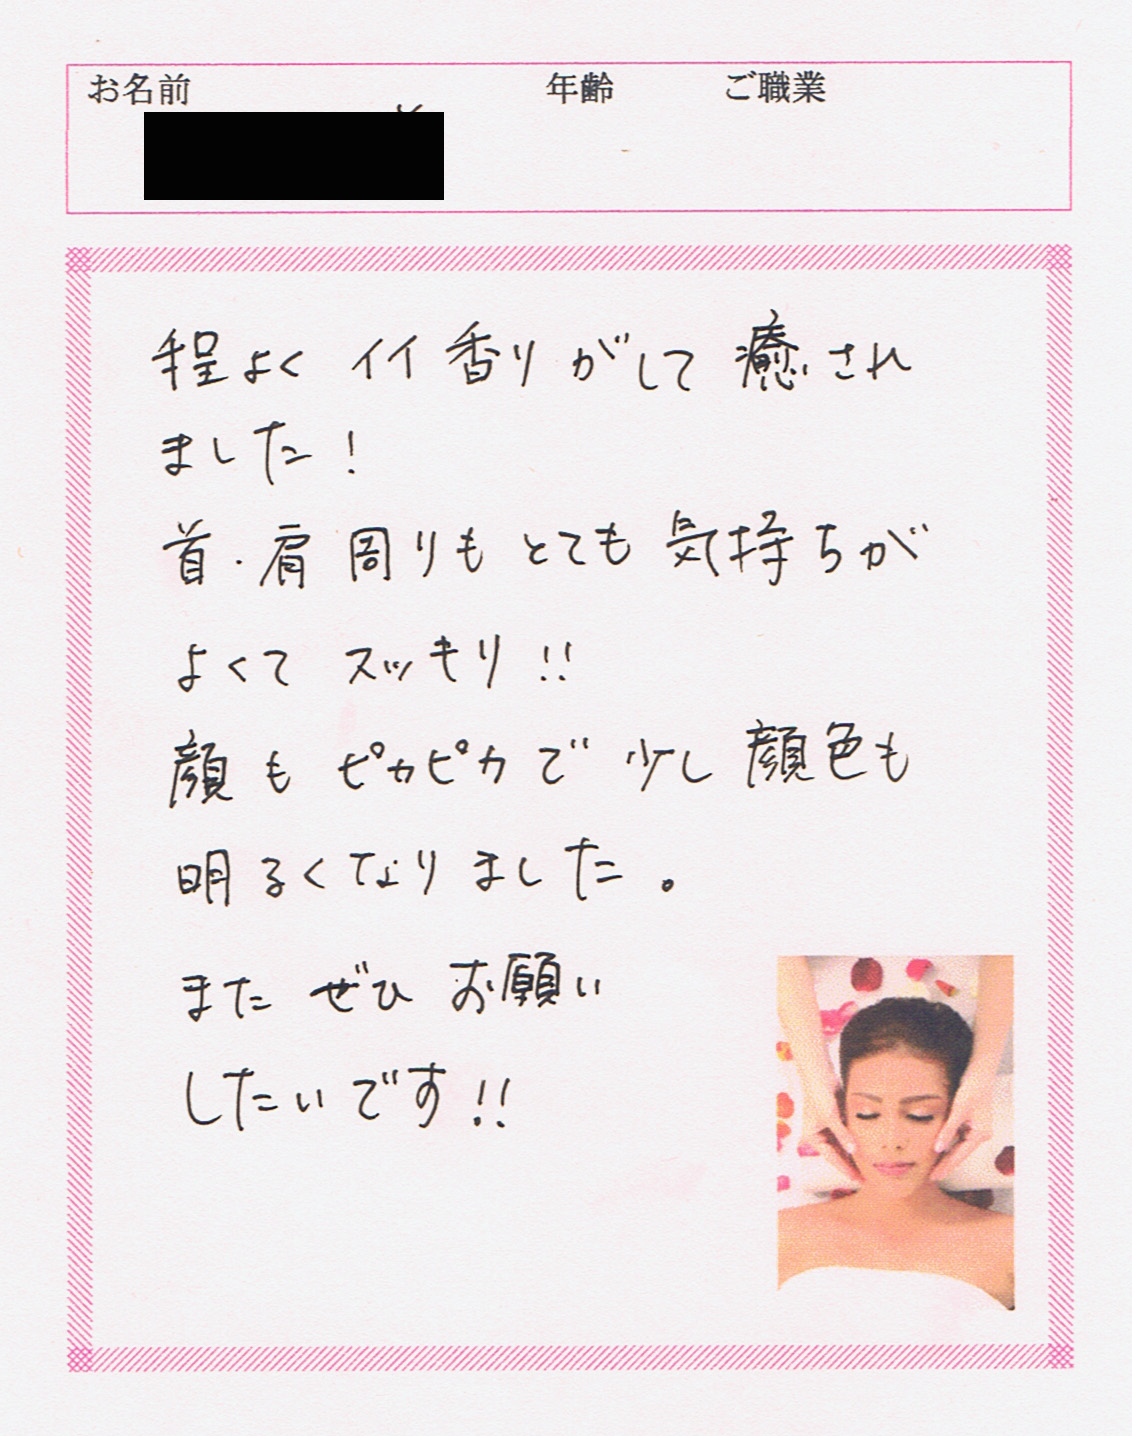 お名前 年齢 ご職業
程よく イイ香りがして 癒され
ました！
首・肩周りもとても気持ちが
よくて スッキリ!!
顔もピカピカで 少し顔色も
明るくなりました。
また ぜひ お願い
したいです!!